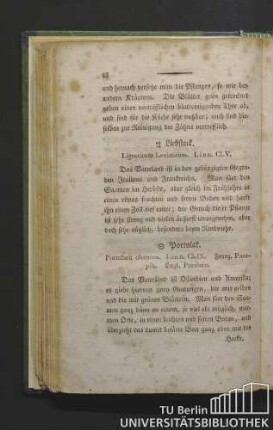 68
und hernach versetzt man die Pflanzen, so wie bey
andern Kräutern. Die Blätter grün getrocknet
geben einen vortrefflichen blutreinigenden Thee ab,
und sind für die Küche sehr nutzbar; auch sind die-
selben zur Reinigung der Zähne vortrefflich.
♃ Liebstock.
Ligusticum Levisticum. Linn. Cl. V.
Das Vaterland ist in den gebirgigten Gegen-
den Italiens und Frankreichs. Man säet den
Saamen im Herbste, oder gleich im Frühjahre in
einen etwas feuchten und fetten Boden und harkt
ihn einen Zoll tief unter; der Geruch dieser Pflanze
ist sehr streng und vielen äußerst unangenehm, aber
doch sehr möglich, besonders beym Rindviehe.
☉ Portulak.
Portulaca oleracea. Linn. Cl. IX. Franz. Pour-
pier. Engl. Purslane.
Das Vaterland ist Ostindien und Amerika;
er ziehet hiervon zwey Gattungen, die mit gelben
und die mit grünen Blättern. Man säet den Saa-
men ganz dünn an einem, so viel als möglich, war-
men Orte, in einen leichten und fetten Boden, und
überzieht das damit besäete Beet ganz eben mit der
Harke,
TU Berlin
UNIVERSITÄTSBIBLIOTHEK